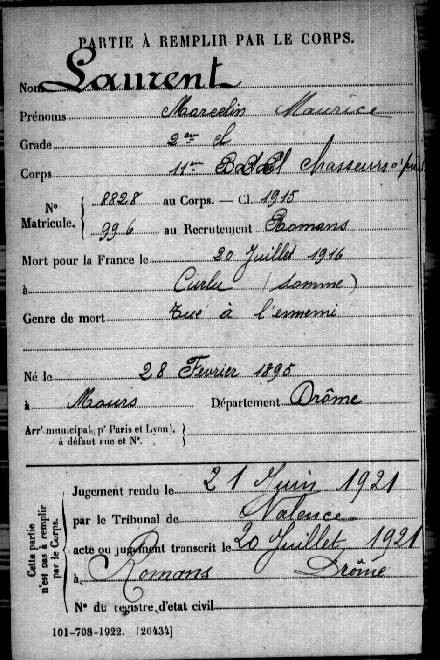 PARTIE À REMPLIR PAR LE CORPS.
Nom Laurent
Prénoms Marcelin Maurice
Grade 2me cl
Corps 11me Chasseurs à pied
N° Matricule. { 8828 au Corps. — Cl. 1915
996 au Recrutement Romans
Mort pour la France le 20 Juillet 1916
à Curlu (Somme)
Genre de mort Tué à l'ennemi
Né le 28 Fevrier 1895
à Mours Département Drôme
Arrt municipal (pr Paris et Lyon), à défaut rue et N°. {
Cette partie n'est pas à remplir par le Corps.
Jugement rendu le 21 Juin 1921
par le Tribunal de Valence
acte ou jugement transcrit le 20 Juillet 1921
à Romans Drôme
N° du registre d'état civil
101-708-1922. [26434]